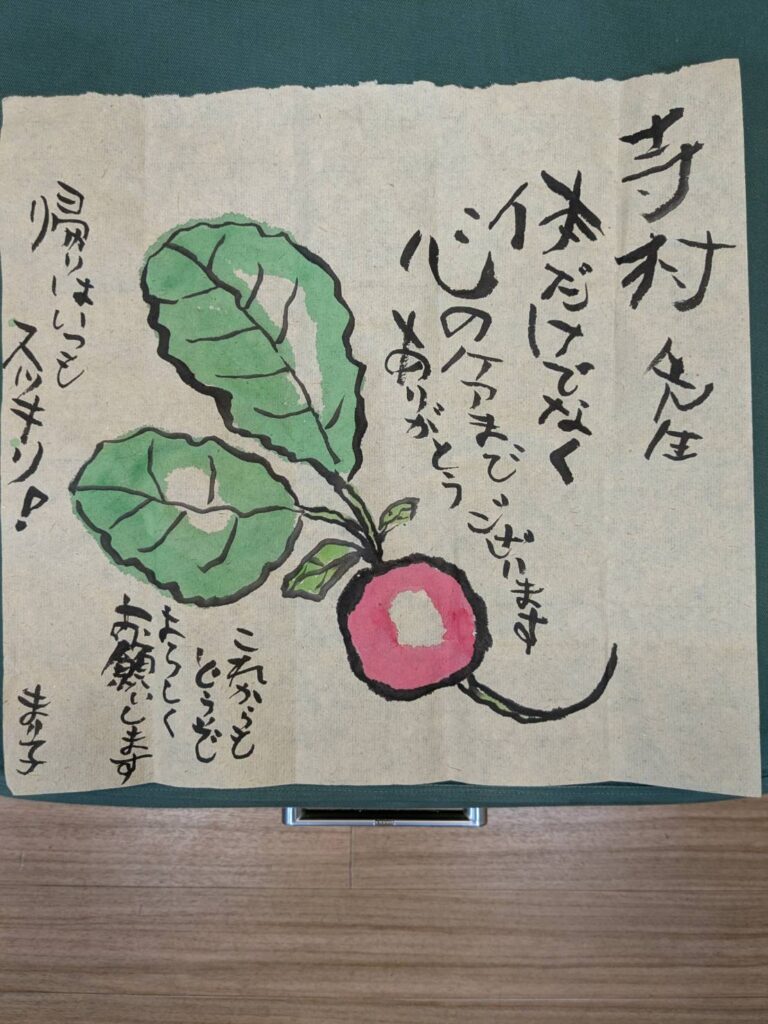 寺村 先生
体だけでなく
心のケアまで
ありがとう
ございます
帰りはいつも
スッキリ!
これからも
どうぞ
よろしく
お願いします
まり子